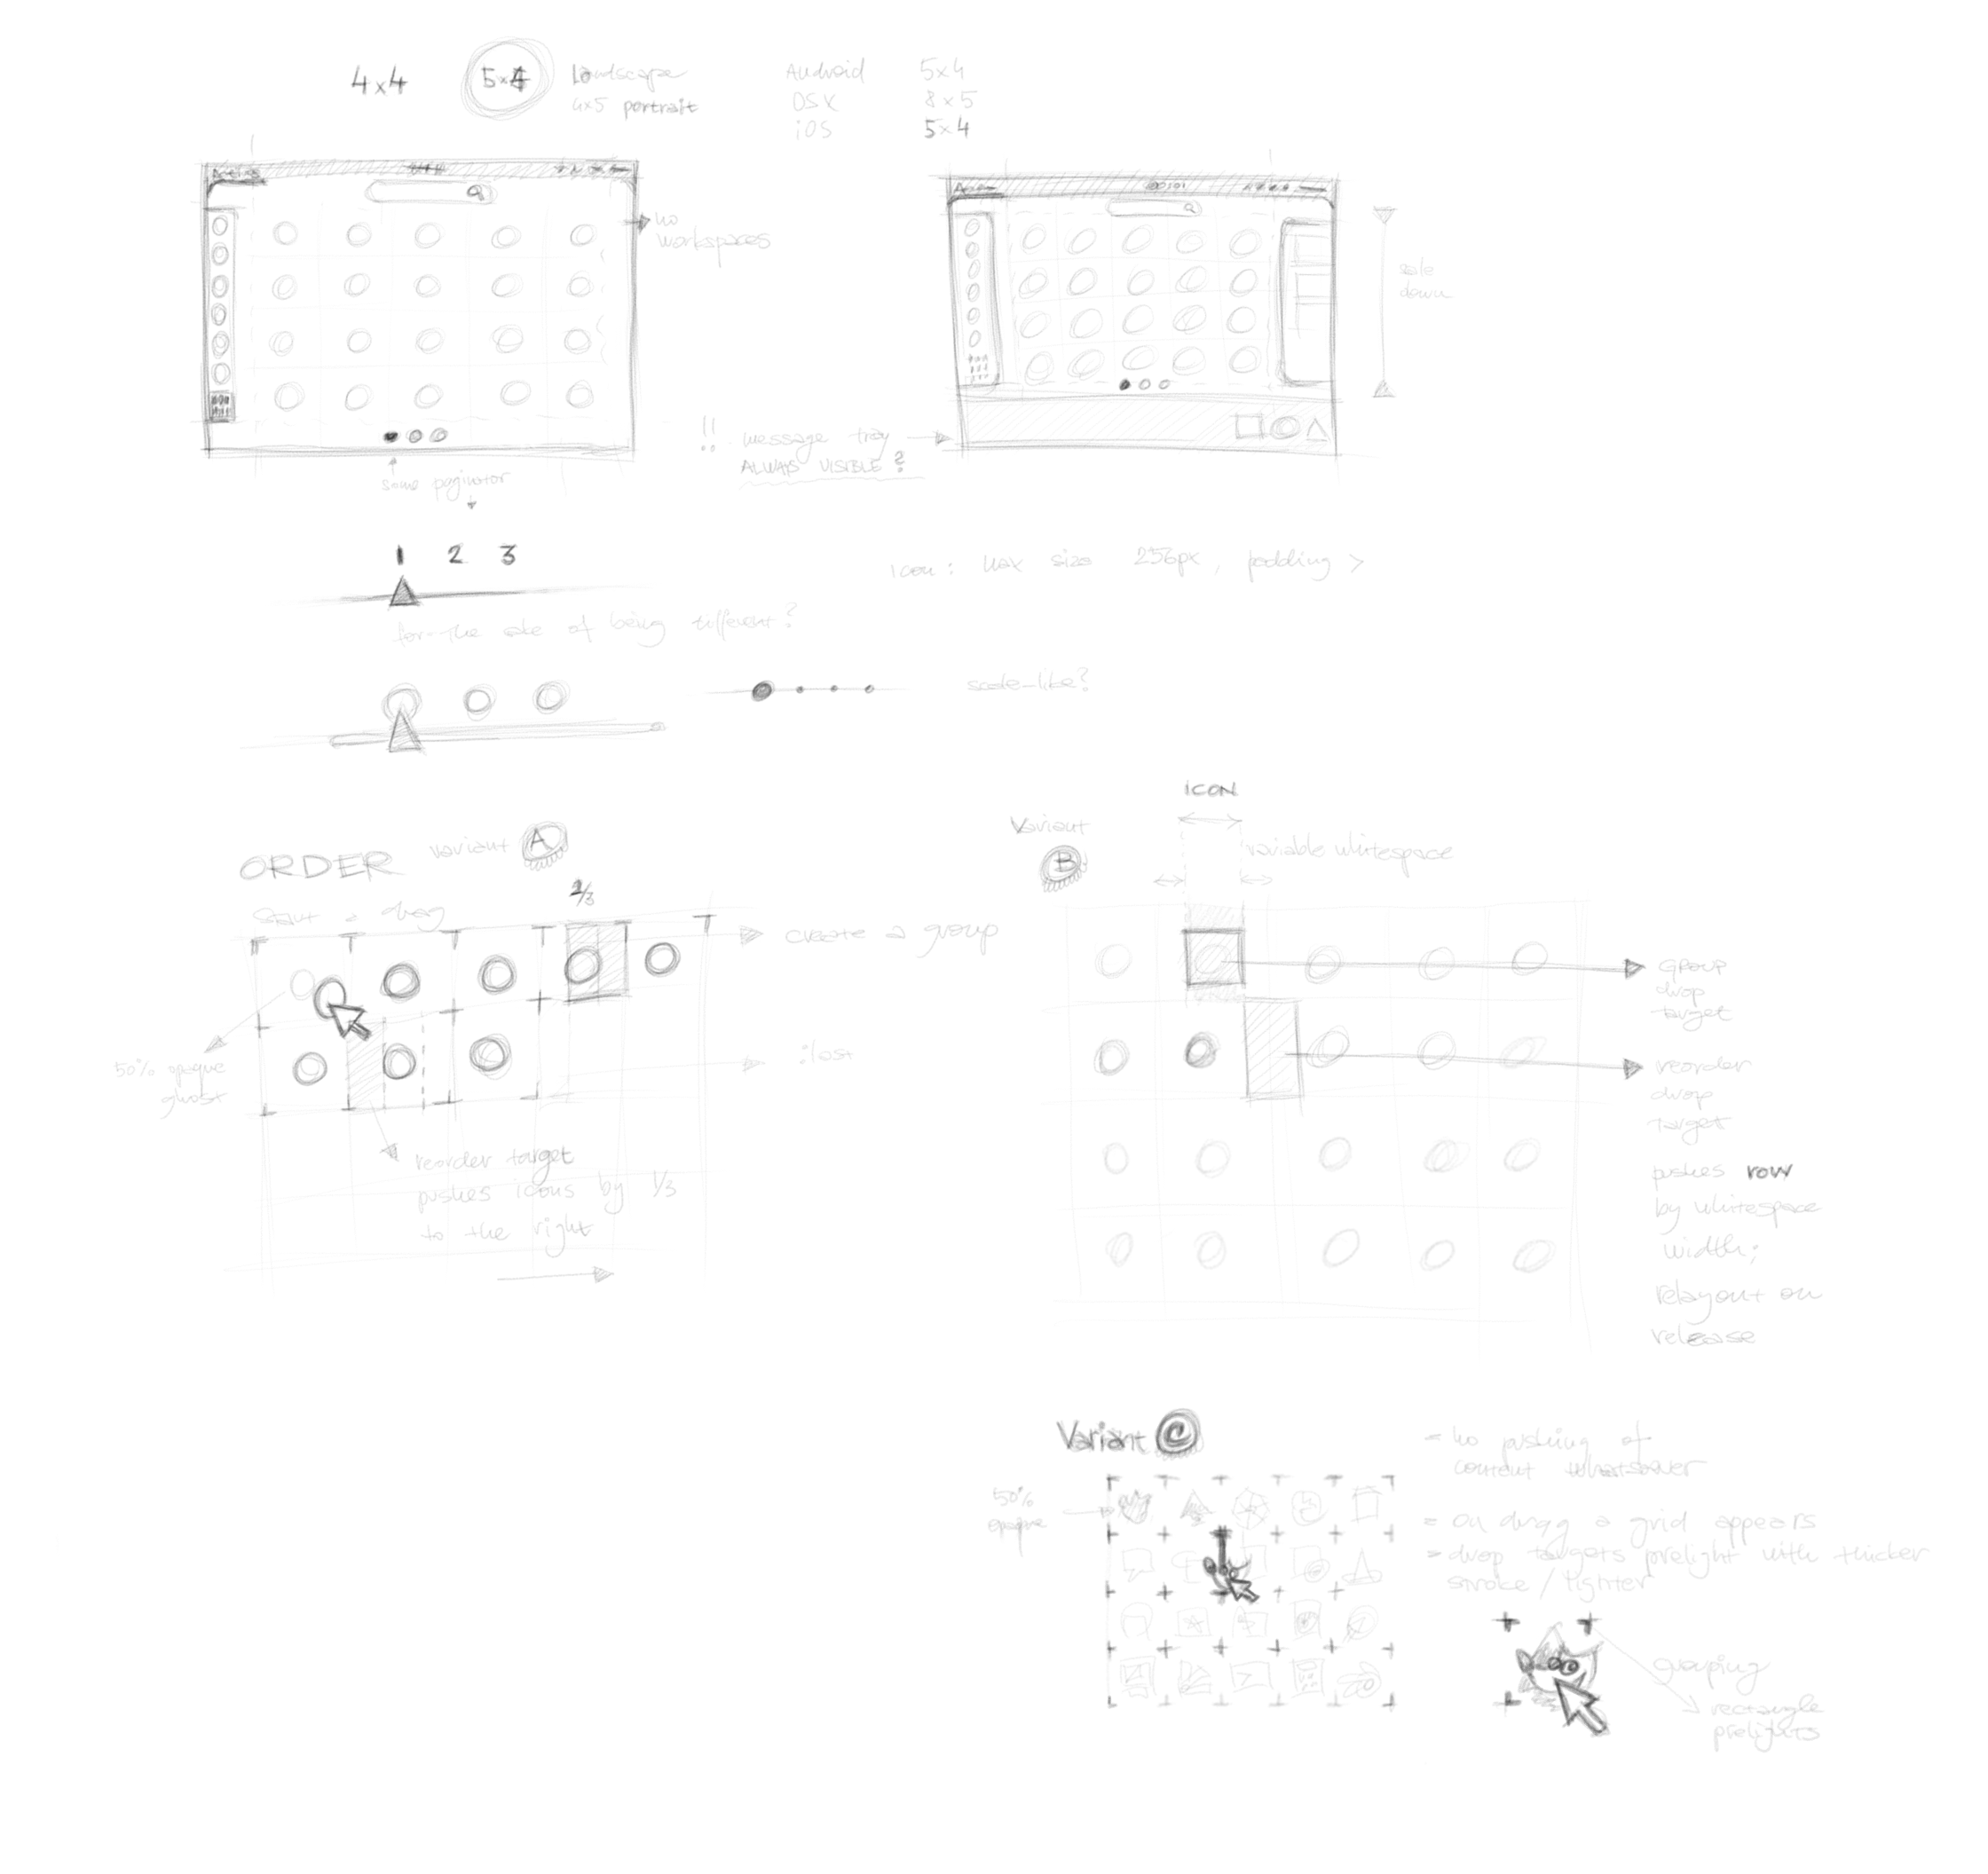 4x4
5x4
Landscape
4x5 portrait
Android 5x4
OSX 8x5
iOS 5x4
no
workspaces
scale
down
!! message tray
ALWAYS VISIBLE?
some paginator
1 2 3
for the sake of being different?
icon: max size 256px, padding >
scale-like?
ORDER
variant A
Start a drag
2/3
create a group
50% opaque
ghost
:last
reorder target
pushes icons by 1/3
to the right
Variant
B
ICON
variable whitespace
GROUP
drop
target
reorder
drop
target
pushes row
by whitespace
width;
relayout on
release
Variant C
50%
opaque
- no pushing of
content whatsoever
= on drag a grid appears
= drop targets prelight with thicker
stroke / lighter
grouping
rectangle
prelights